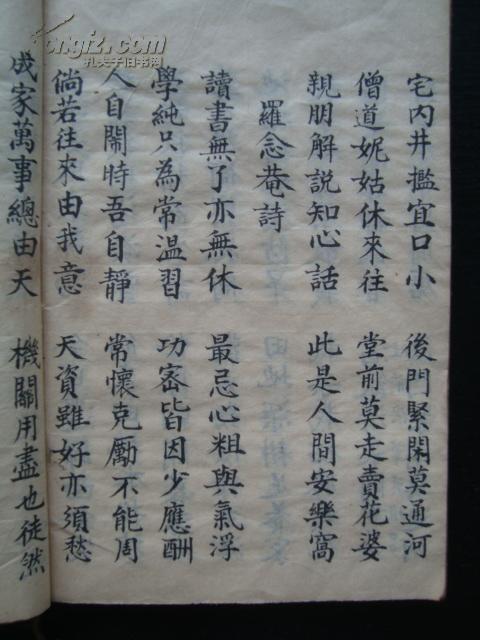 宅內井㨫宜口小 後門緊閑莫通河
僧道妮姑休來往 堂前莫走賣花婆
親朋解説知心話 此是人間安樂窩
羅念菴詩
讀書無了亦無休 最忌心粗與氣浮
學純只為常温習 功宻皆因少應酬
人自鬧時吾自靜 常懷克勵不能周
倘若往來由我意 天資雖好亦須愁
成家萬事總由天 機關用盡也徒然
kongfz.com
孔夫子旧书网